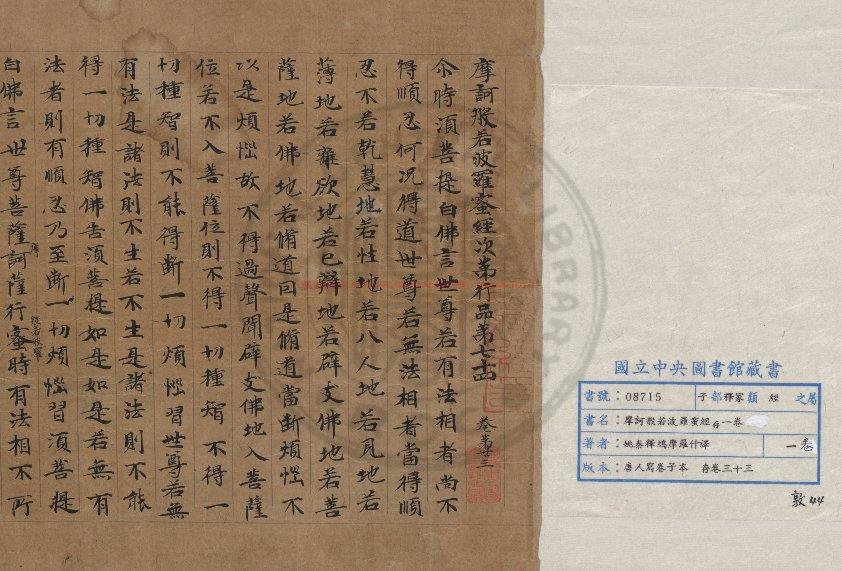 摩訶般若波羅蜜經次苐行品第七十四 卷第卅三
尒時湏菩提白佛言世尊若有法相者尚不
得順忍何況得道世尊若無法相者當得順
忍不若乾慧地若性地若八人地若見地若
薄地若離欲地若已辦地若辟支佛地若菩
薩地若佛地若脩道因是脩道當断煩惱不
以是煩惱故不得過聲聞辟支佛地入菩薩
位若不入菩薩位則不得一切種智不得一
切種智則不能得断一切煩惱習世尊若無
有法是諸法則不生若不生是諸法則不能
得一切種智佛告湏菩提如是如是若無有
法者則有順忍乃至断一切煩惱習湏菩提
白佛言世尊菩薩摩訶薩行般若波羅蜜時有法相不所
國立中央圖書館藏書
書號：08715 子部釋家類 經 之屬
書名：摩訶般若波羅蜜經存一卷
著者：姚秦釋鳩摩羅什譯 一卷
版本：唐人寫卷子本 存卷三十三
敦44
LIBRARY